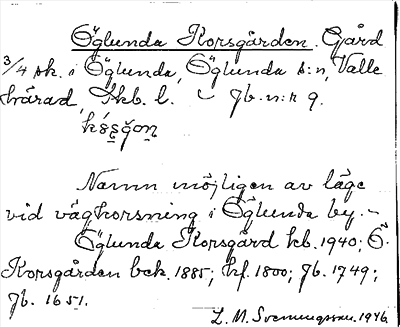 Öglunda Korsgården. Gård
3/4 sk. i Öglunda, Öglunda s:n, Valle
härad, Skb. l. Jb. n:r 9.
Namn möjligen av läge
vid vägkorsning i Öglunda by. -
Öglunda Korsgård kb. 1940; Ö.
Korsgården bek. 1885; kf. 1800; Jb. 1749;
Jb. 1651.
L. M. Svenungsson. 1946.